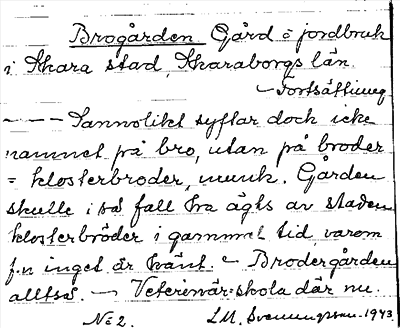 Brogården Gård = jordbruk
i Skara stad, Skaraborgs län.
- Fortsättning
- - - Sannolikt syftar dock icke
namnet på bro, utan på broder
= klosterbroder, munk. Gården
skulle i så fall ha ägts av staden
klosterbröder i gammal tid, varom
f.n inget är känt. - Brodergården
alltså. - Veterinär-skola där nu.
No 2. L.M. Svenungsson - 1943